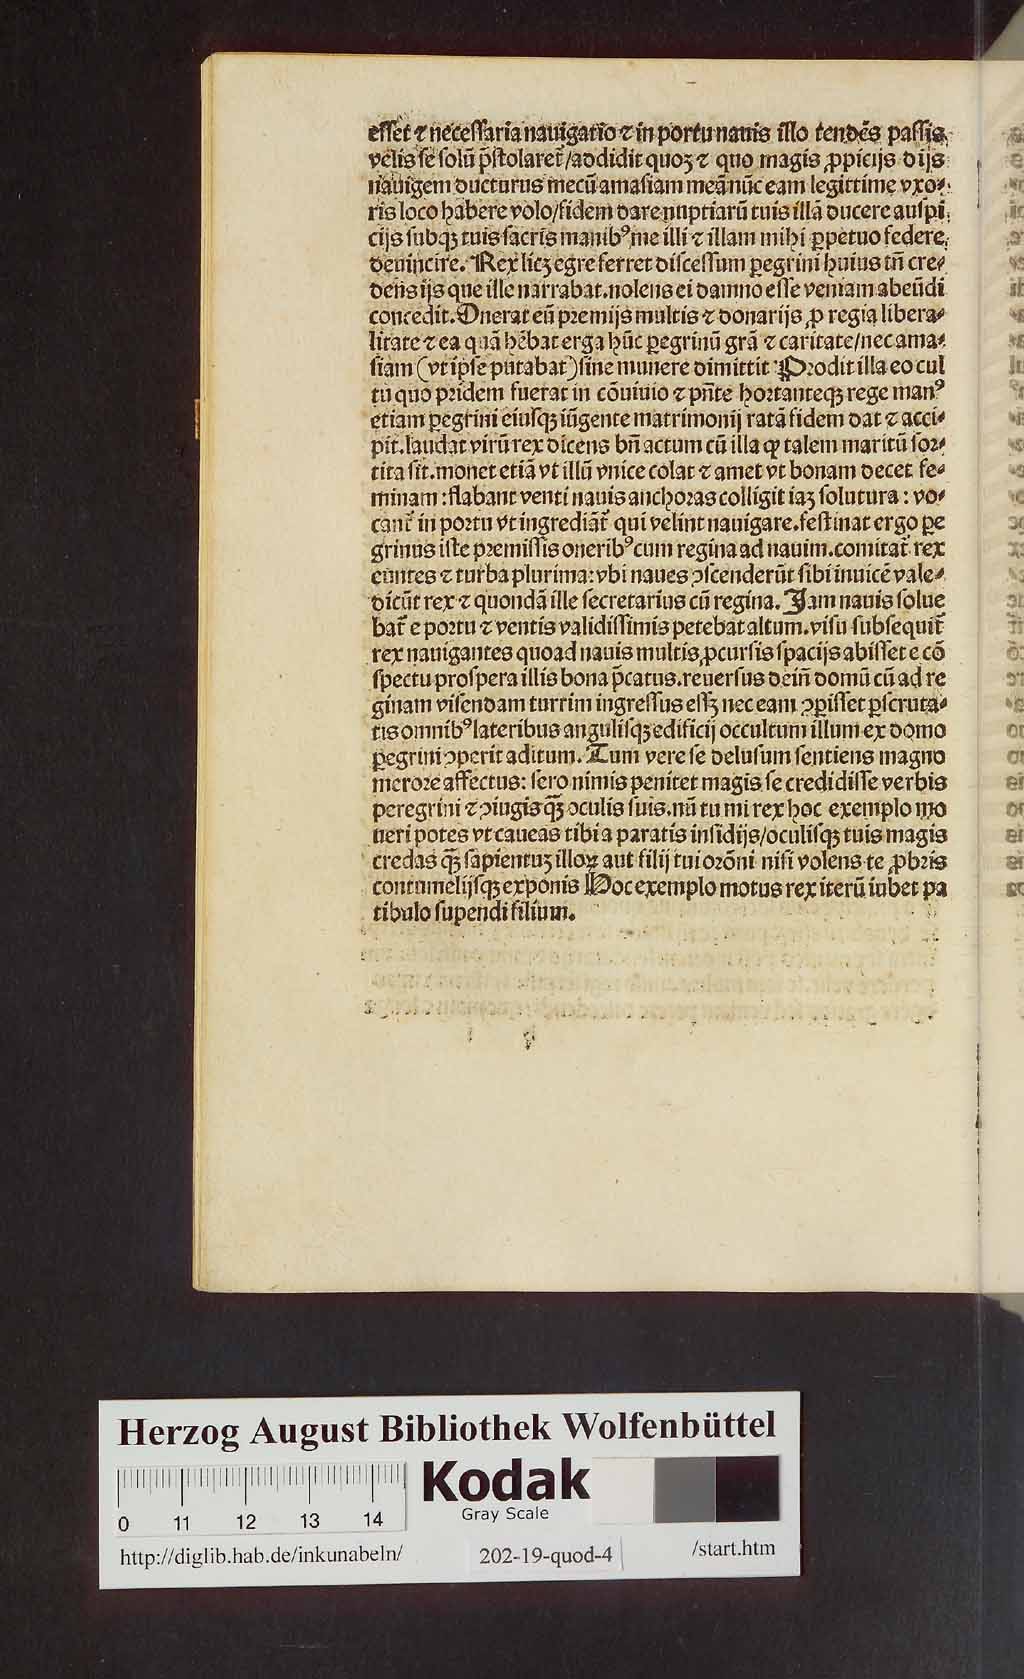 eſſet ⁊ neceſſaria nauigatio ⁊ in portu nauis illo tendēs paſſis
velis ſe ſolū p̄ſtolaret̃/addidit quoqꝫ ⁊ quo magis ꝓpicijs dijs
nauigem ducturus mecū amaſiam meā nūc eam legittime vxo⸗
ris loco habere volo/fidem dare nuptiarū tuis illā ducere auſpi
cijs ſubqꝫ tuis ſacris manibꝰ me illi ⁊ illam mihi ꝑpetuo federe
deuincire. Rex licꝫ egre ferret diſceſſum ꝑegrini huius tn̄ cre⸗
dens ijs que ille narrabat.nolens ei damno eſſe veniam abeūdi
concedit.Onerat eū premijs multis ⁊ donarijs ꝓ regia libera⸗
litate ⁊ ea quā hēbat erga hūc ꝑegrinū grā ⁊ caritate/nec ama⸗
ſiam (vt ipſe putabat) ſine munere dimittit Prodit illa eo cul
tu quo pridem fuerat in cōuiuio ⁊ pn̄te hortanteqꝫ rege manꝰ
etiam ꝑegrini eiuſqꝫ iūgente matrimonij ratā fidem dat ⁊ acci⸗
pit.laudat virū rex dicens bn̄ actum cū illa ꝙ talem maritū ſor⸗
tita ſit.monet etiā vt illū vnice colat ⁊ amet vt bonam decet fe⸗
minam :flabant venti nauis anchoras colligit iaꝫ ſolutura : vo⸗
cant̃ in portu vt ingrediāt̃ qui velint nauigare.feſtinat ergo ꝑe
grinus iſte premiſſis oneribꝰ cum regina ad nauim.comitat̃ rex
euntes ⁊ turba plurima:vbi naues ↄſcenderūt ſibi inuicē vale⸗
dicūt rex ⁊ quondā ille ſecretarius cū regina. Jam nauis ſolue
bat̃ e portu ⁊ ventis validiſſimis petebat altum.viſu ſubſequit̃
rex nauigantes quoad nauis multis ꝓcurſis ſpacijs abiſſet e cō
ſpectu proſpera illis bona p̄catus.reuerſus dein̄ domū cū ad re
ginam viſendam turrim ingreſſus eſſꝫ nec eam ↄꝑiſſet ꝑſcruta⸗
tis omnibꝰ lateribus anguliſqꝫ edificij occultum illum ex domo
ꝑegrini ↄperit aditum. Tum vere ſe deluſum ſentiens magno
merore affectus: ſero nimis penitet magis ſe credidiſſe verbis
peregrini ⁊ ↄiugis qꝫ̄ oculis ſuis.nū tu mi rex hoc exemplo mo
neri potes vt caueas tibi a paratis inſidijs/oculiſqꝫ tuis magis
credas qꝫ̄ ſapientuꝫ illoꝝ aut filij tui orōni niſi volens te ꝓbris
contumelijſqꝫ exponis Hoc exemplo motus rex iterū iubet pa
tibulo ſuꝑendi filium.
Herzog August Bibliothek Wolfenbüttel
Kodak
Gray Scale
0 11 12 13 14
http://diglib.hab.de/inkunabeln/ 202-19-quod-4 /start.htm